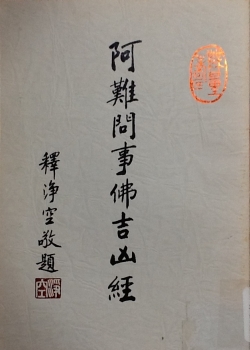 阿難問事佛吉凶經
釋淨空敬題
淨空